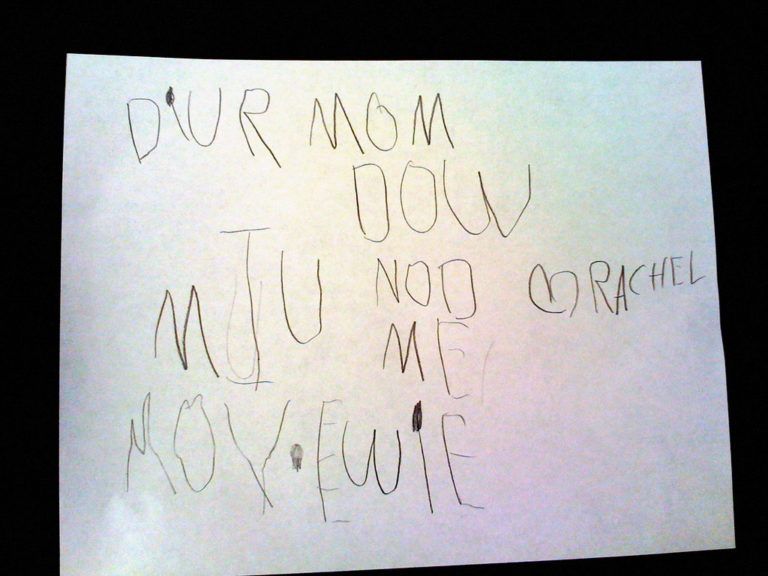 D'UR MOM
DOW
MIU NOD ♡ RACHEL
ME
MOV.EWIE